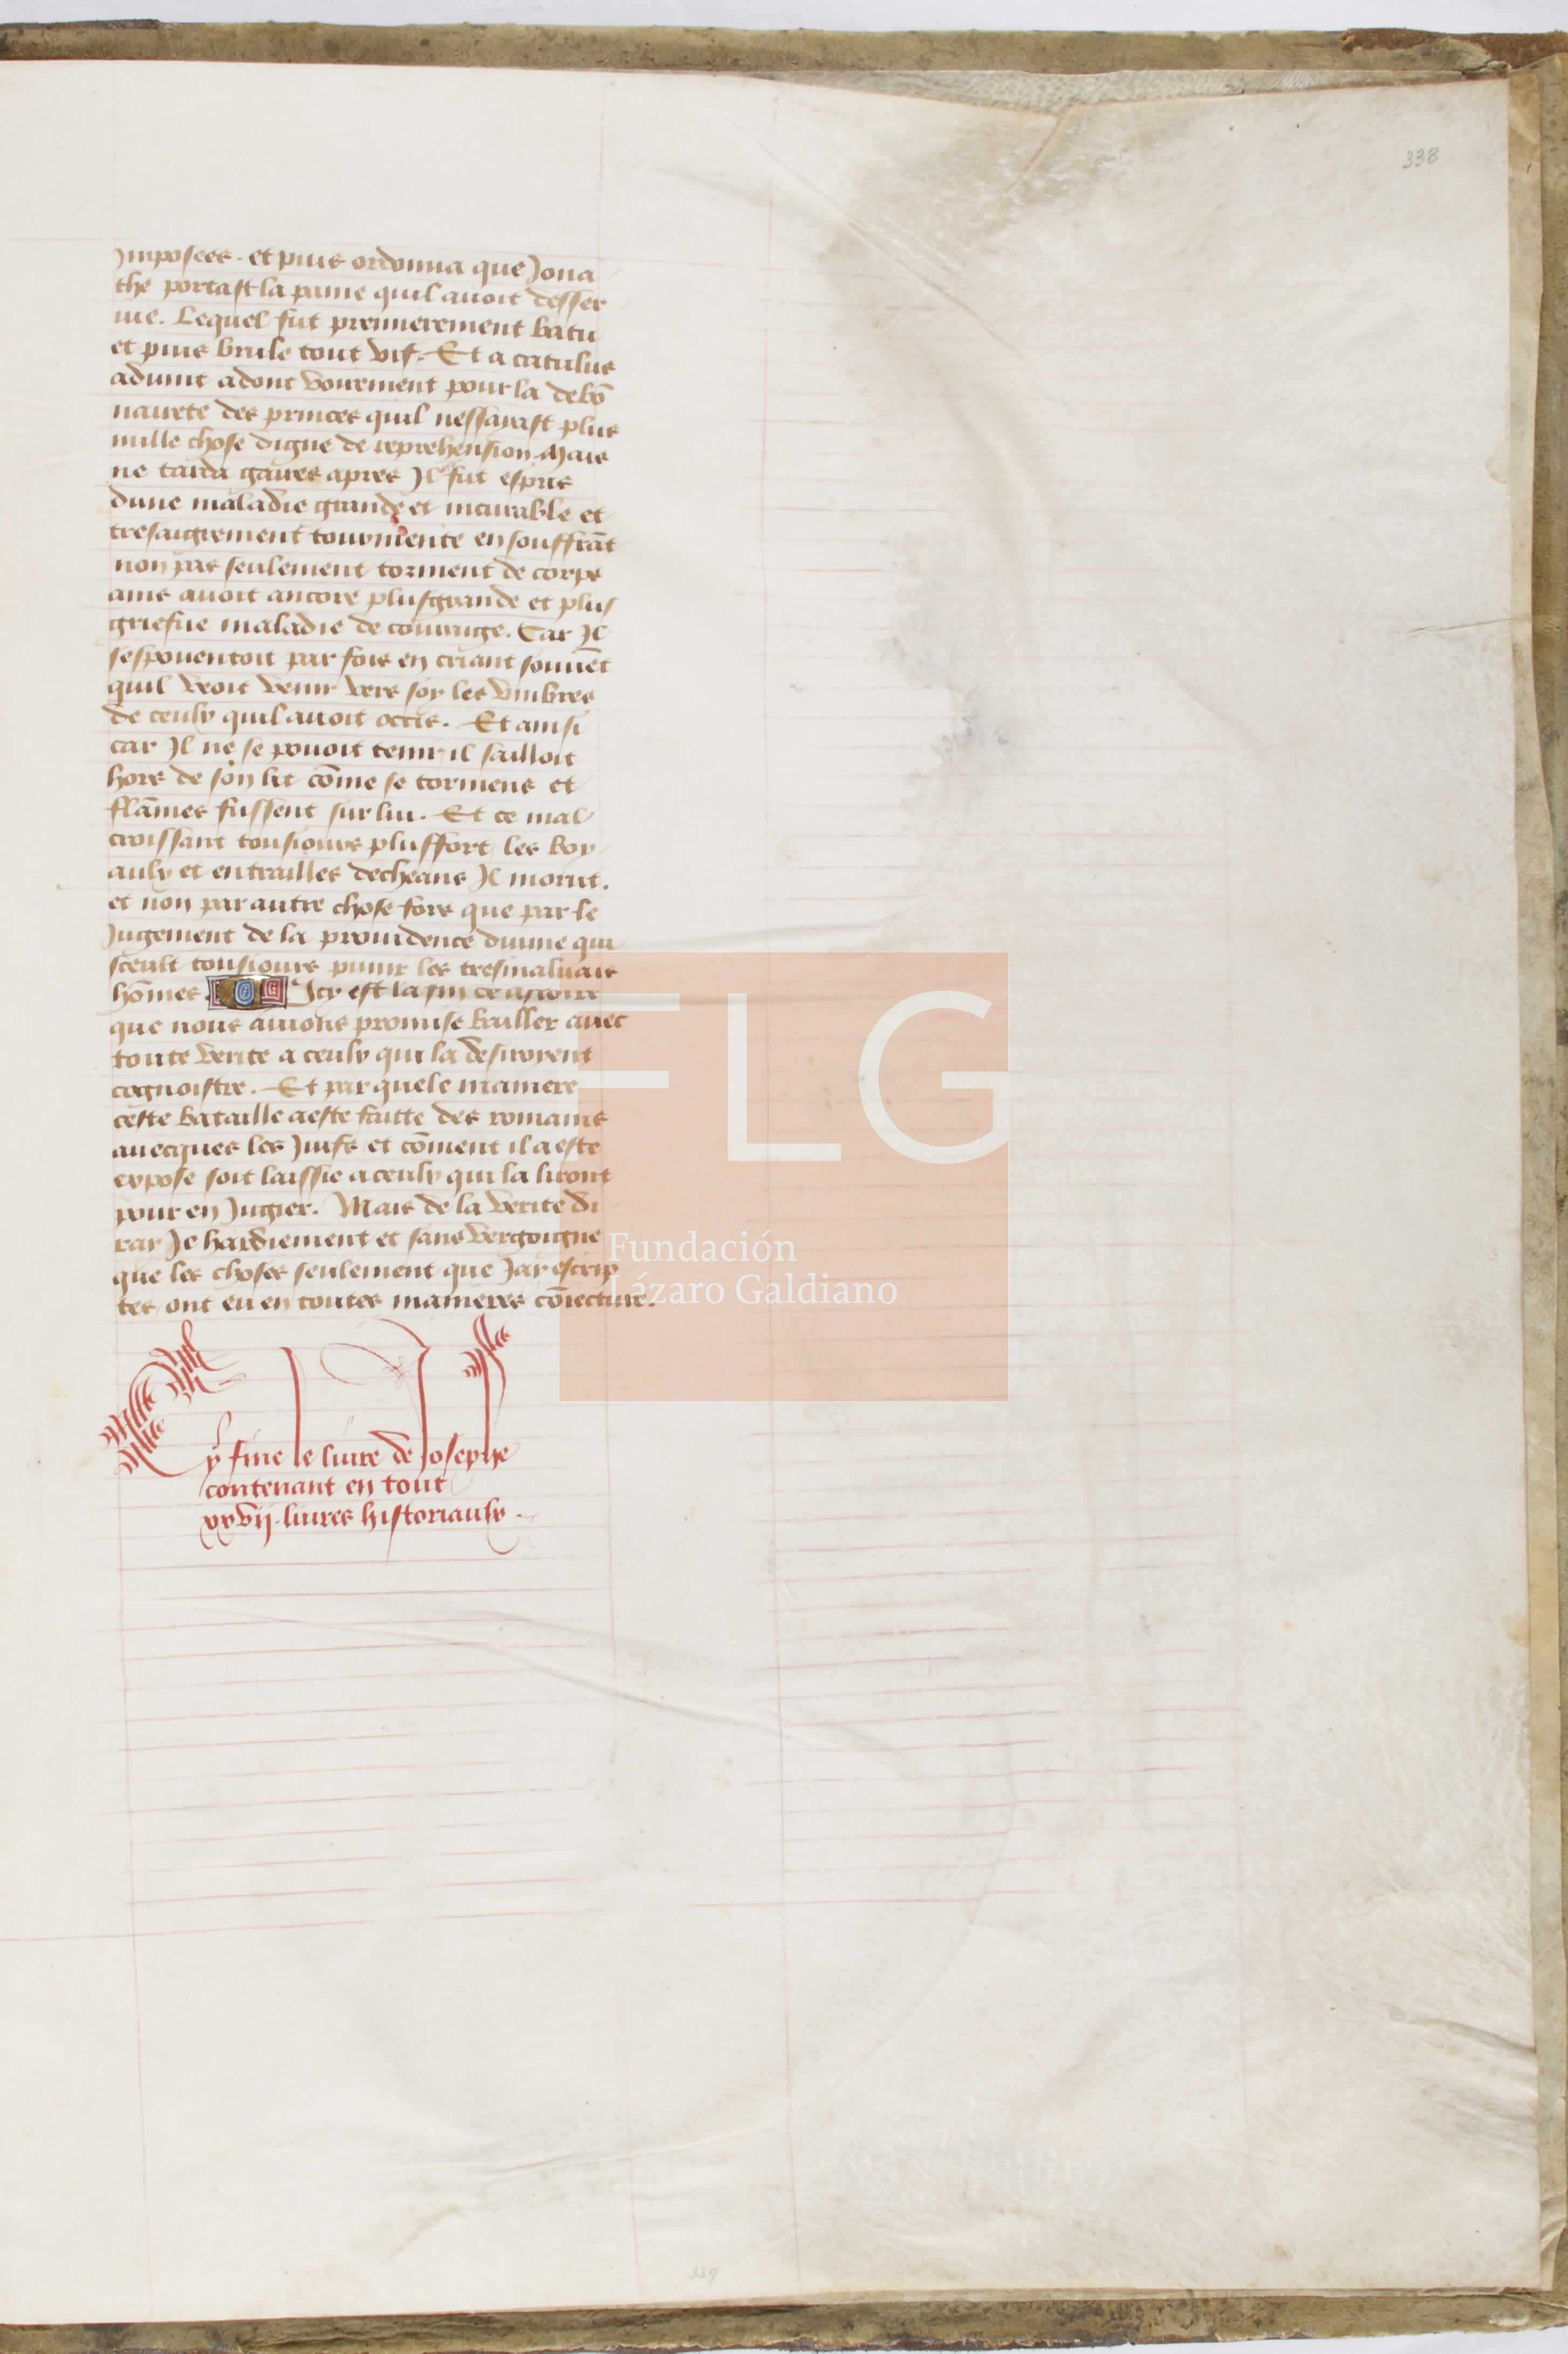 338
Jmposees. et puis ordonna que Jona
the portast la paine quil auoit desser
uie. Lequel fut premierement batu
et puis brule tout vif. Et a catulus
aduint adont vourement pour la debō
naurete des princes quil nessaiast plus
nulle chose digne de reprehension. Mais
ne tarda gaires apres Jl fut espris
dune maladie grande et incurable et
tresaigrement tourmente en souffrāt
non pas seulement torment de corps
ains auoit ancore plusgrande et plus
griefue maladie de couraige. Car Jl
sespouentoit par fois en criant souuēt
quil veoit venir vers soy les vmbres
de ceulx quil auoit occis. Et ainsi
car Jl ne se pouoit tenir il sailloit
hors de son lit cōme se tormens et
flāmes fussent sur lui. Et ce mal
croissant tousiours pluffort les boy
aulx et entrailles decheans Jl morut.
et non par autre chose fors que par le
Jugement de la prouidence diuine qui
sceult tousiours punir les tresmaluais
hōmes. Icy est la fin
que nous auions promise bailler auec
toute verite a ceulx qui la desiroyent
cognoistre. Et par quele maniere
ceste bataille a este faitte des romains
auecques les Juifs et cōment il a este
expose soit laissie a ceulx qui la liront
pour en Jugier. Mais de la verite di
ray Je hardiement et sans vergoigne
que les choses seulement que Jay escrip
tes ont eu en toutes manieres cōiecture.
Cy fine le liure de Josephe
contenant en tout
xxvij. liures historiaulx.
FLG
Fundación
Lázaro Galdiano
339